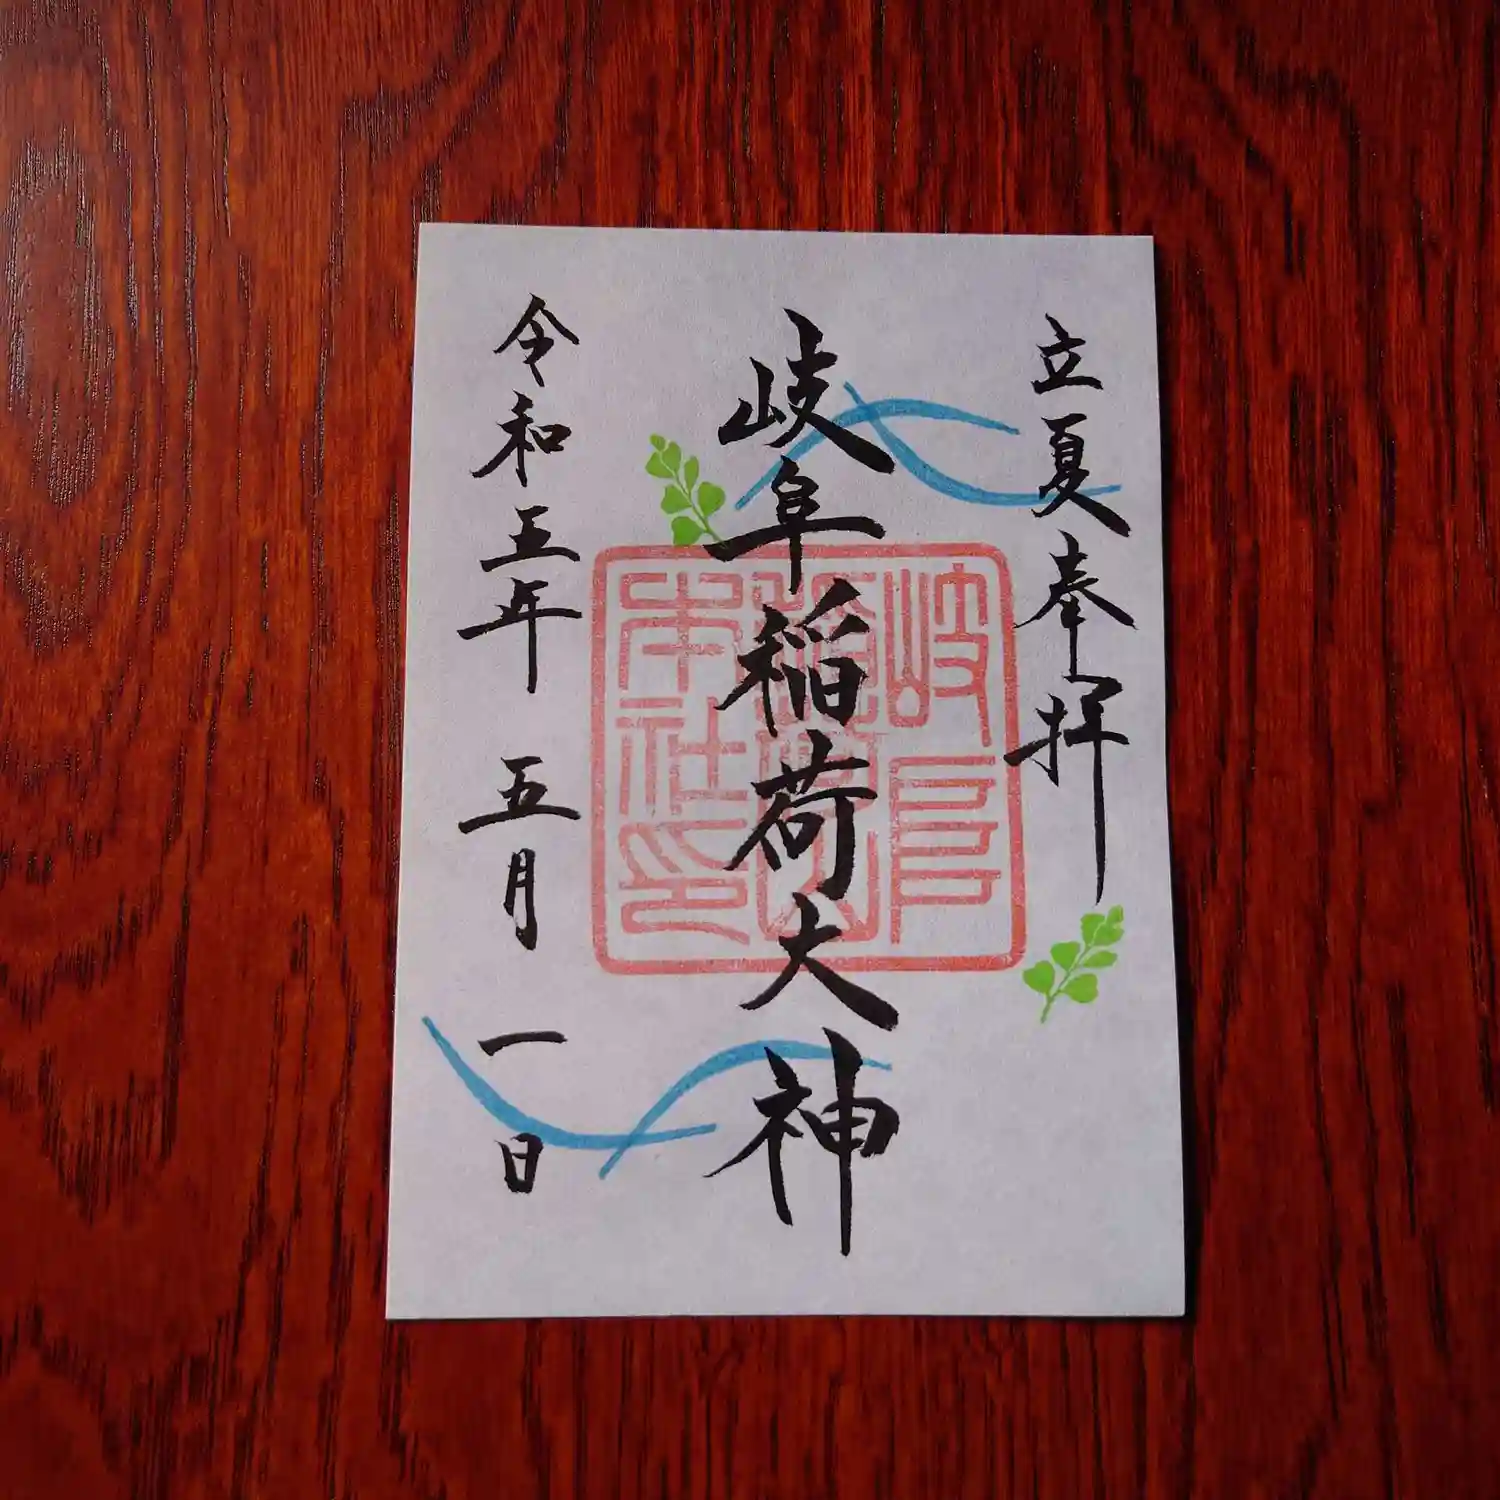 立夏奉拝
岐阜稲荷大神
令和五年 五月 一日
岐阜
本社印